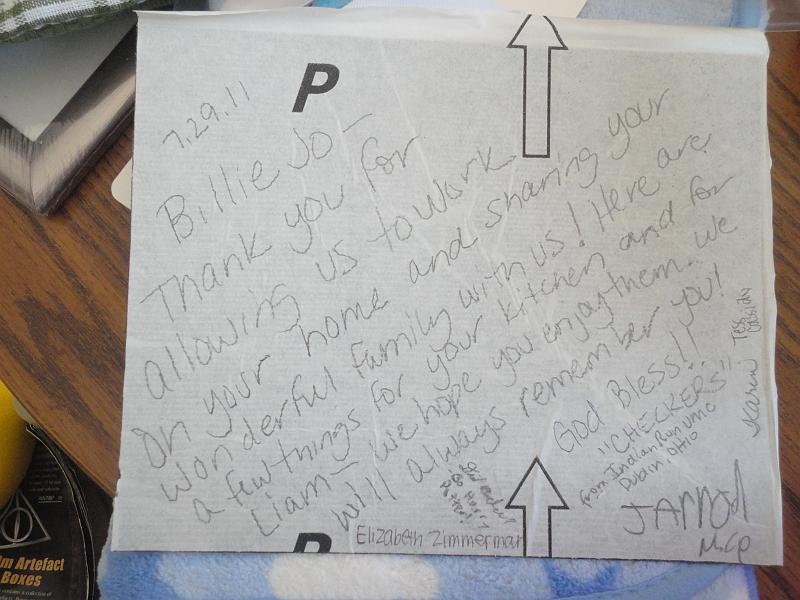 P
7.29.11
Billie Jo -
Thank you for
allowing us to work
on your home and sharing your
wonderful family with us! Here are
a few things for your kitchen and for
Liam - we hope you enjoy them. We
will always remember you!
God Bless!!
"CHECKERS"
from Indian Run UMC
Dublin, Ohio
Tess
Karin
JArrod
McCo
Elizabeth Zimmerman
P
m Artefact
Boxes